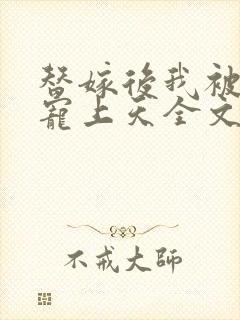 替嫁後我被
寵上天全文
不戒大師